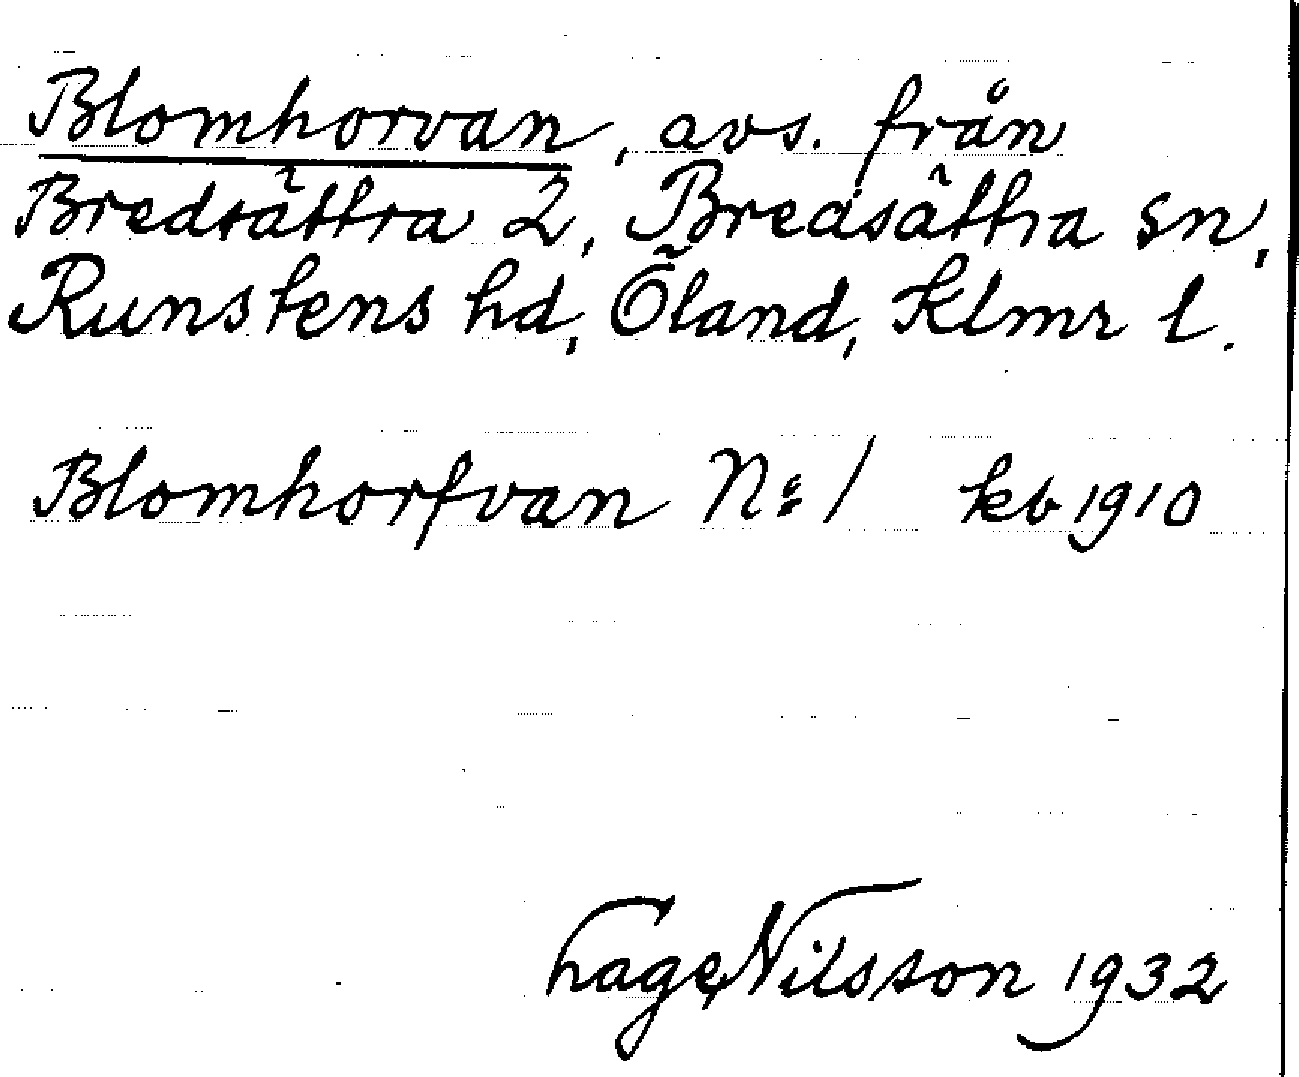 Blomhorvan, avs. från
Bredsättra 2, Bredsättra sn,
Runstens hd, Öland, Klmr l.
Blomhorfvan No 1 kb 1910
Hage Nilsson 1932